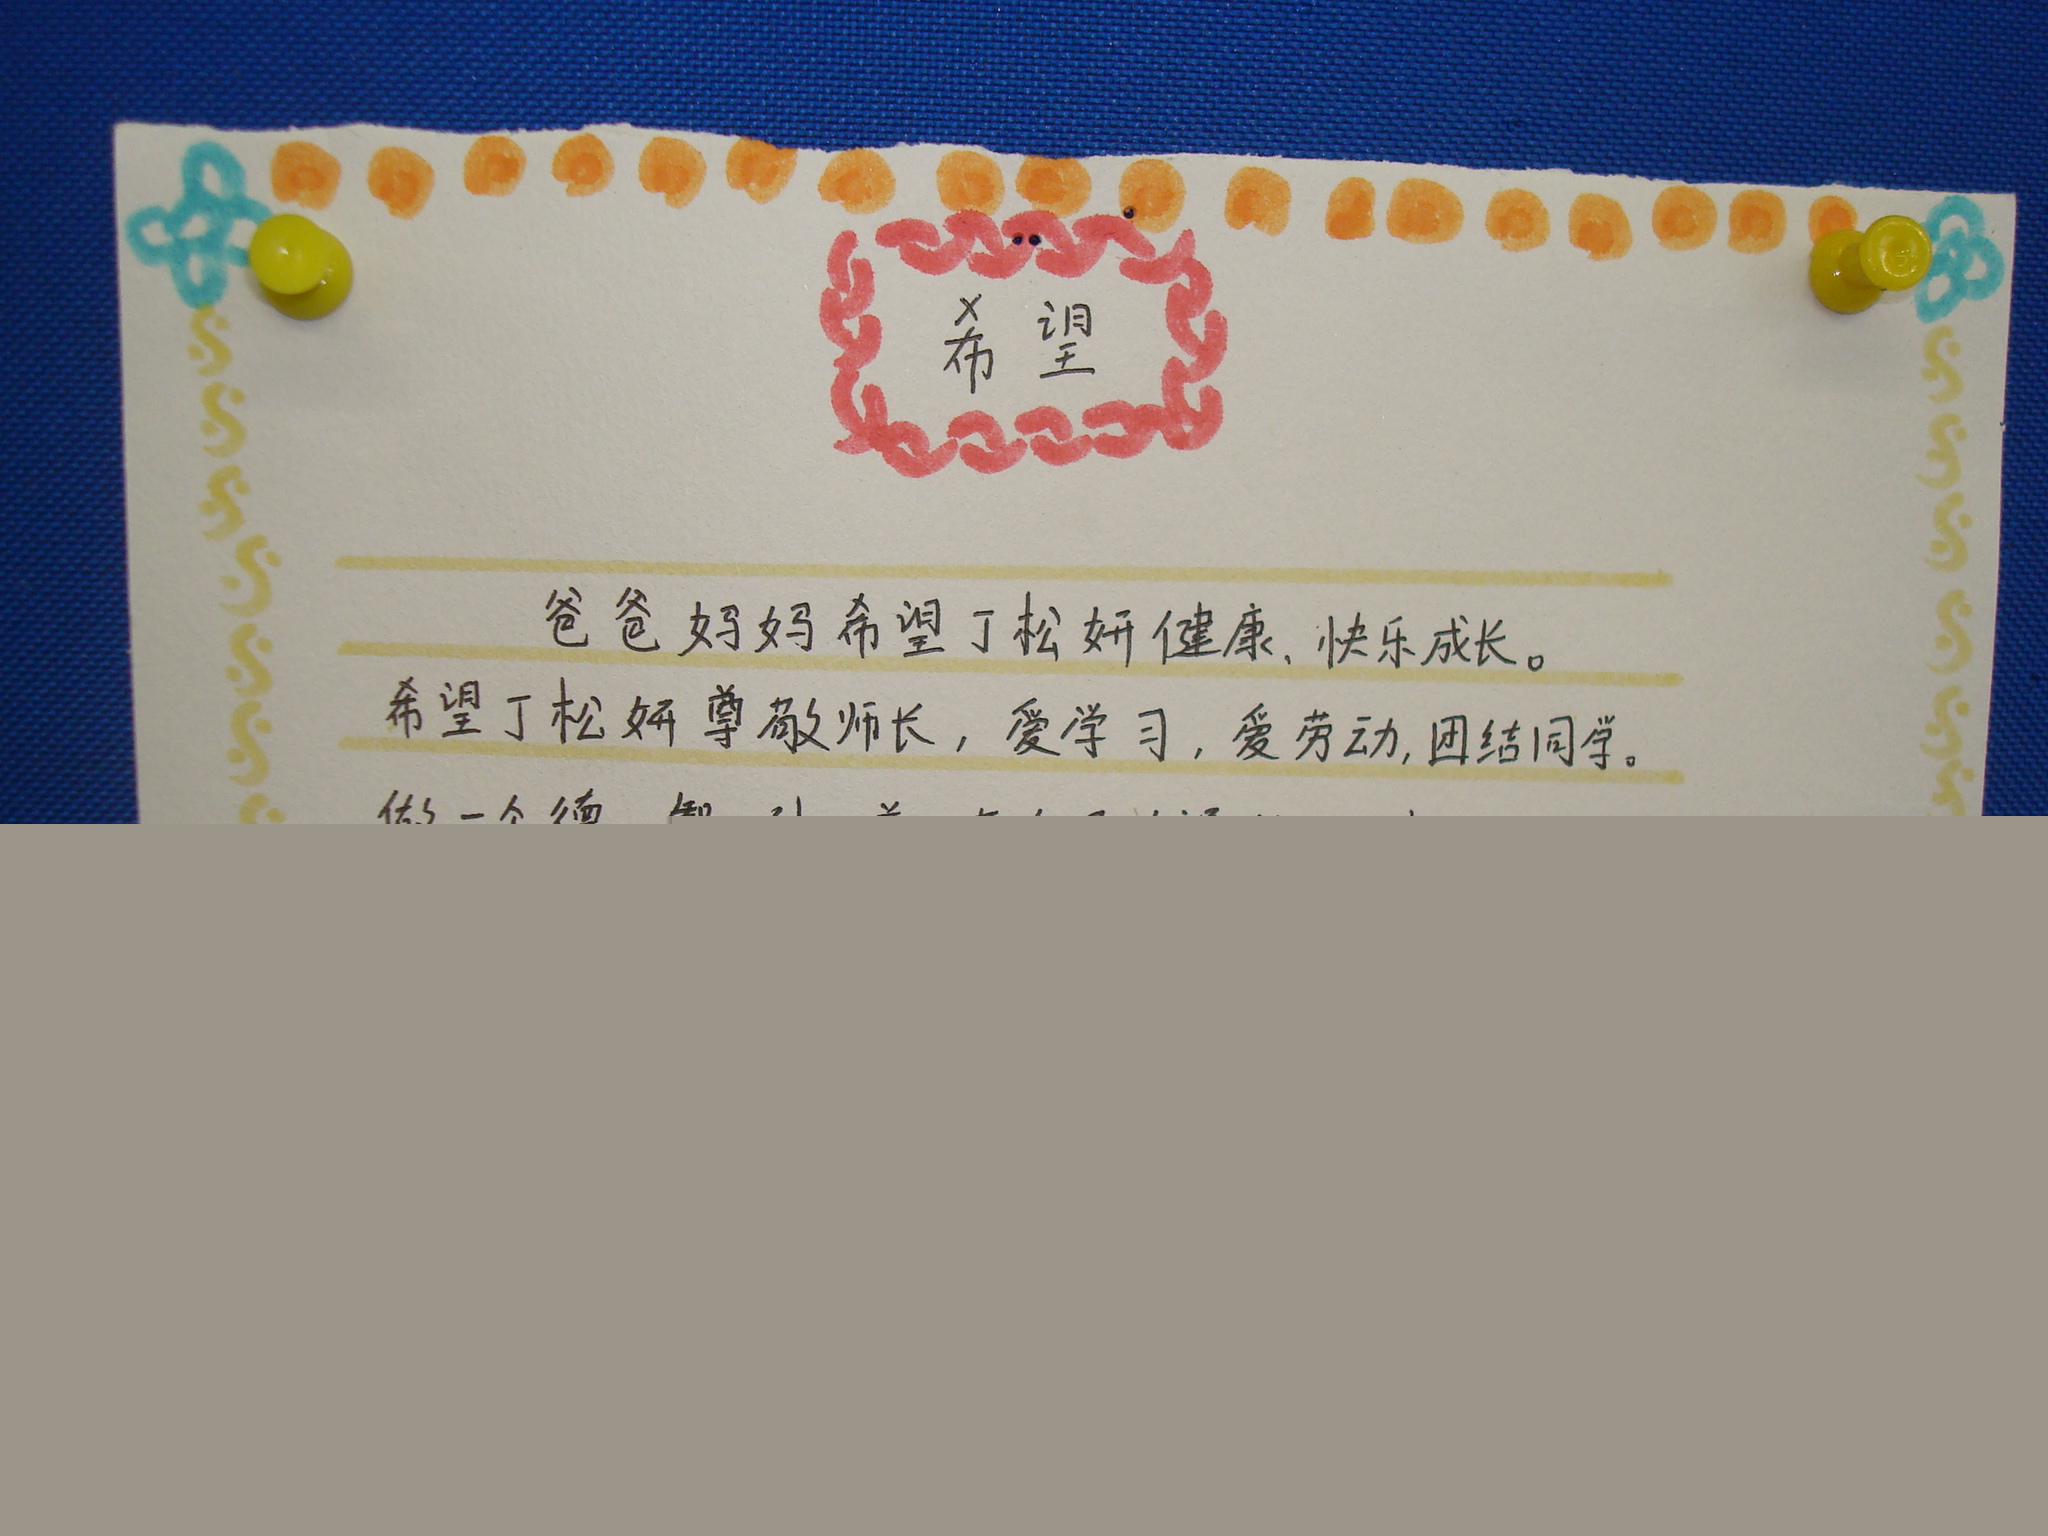 希望
爸爸妈妈希望丁松妍健康、快乐成长。
希望丁松妍尊敬师长，爱学习，爱劳动，团结同学。
做一个德